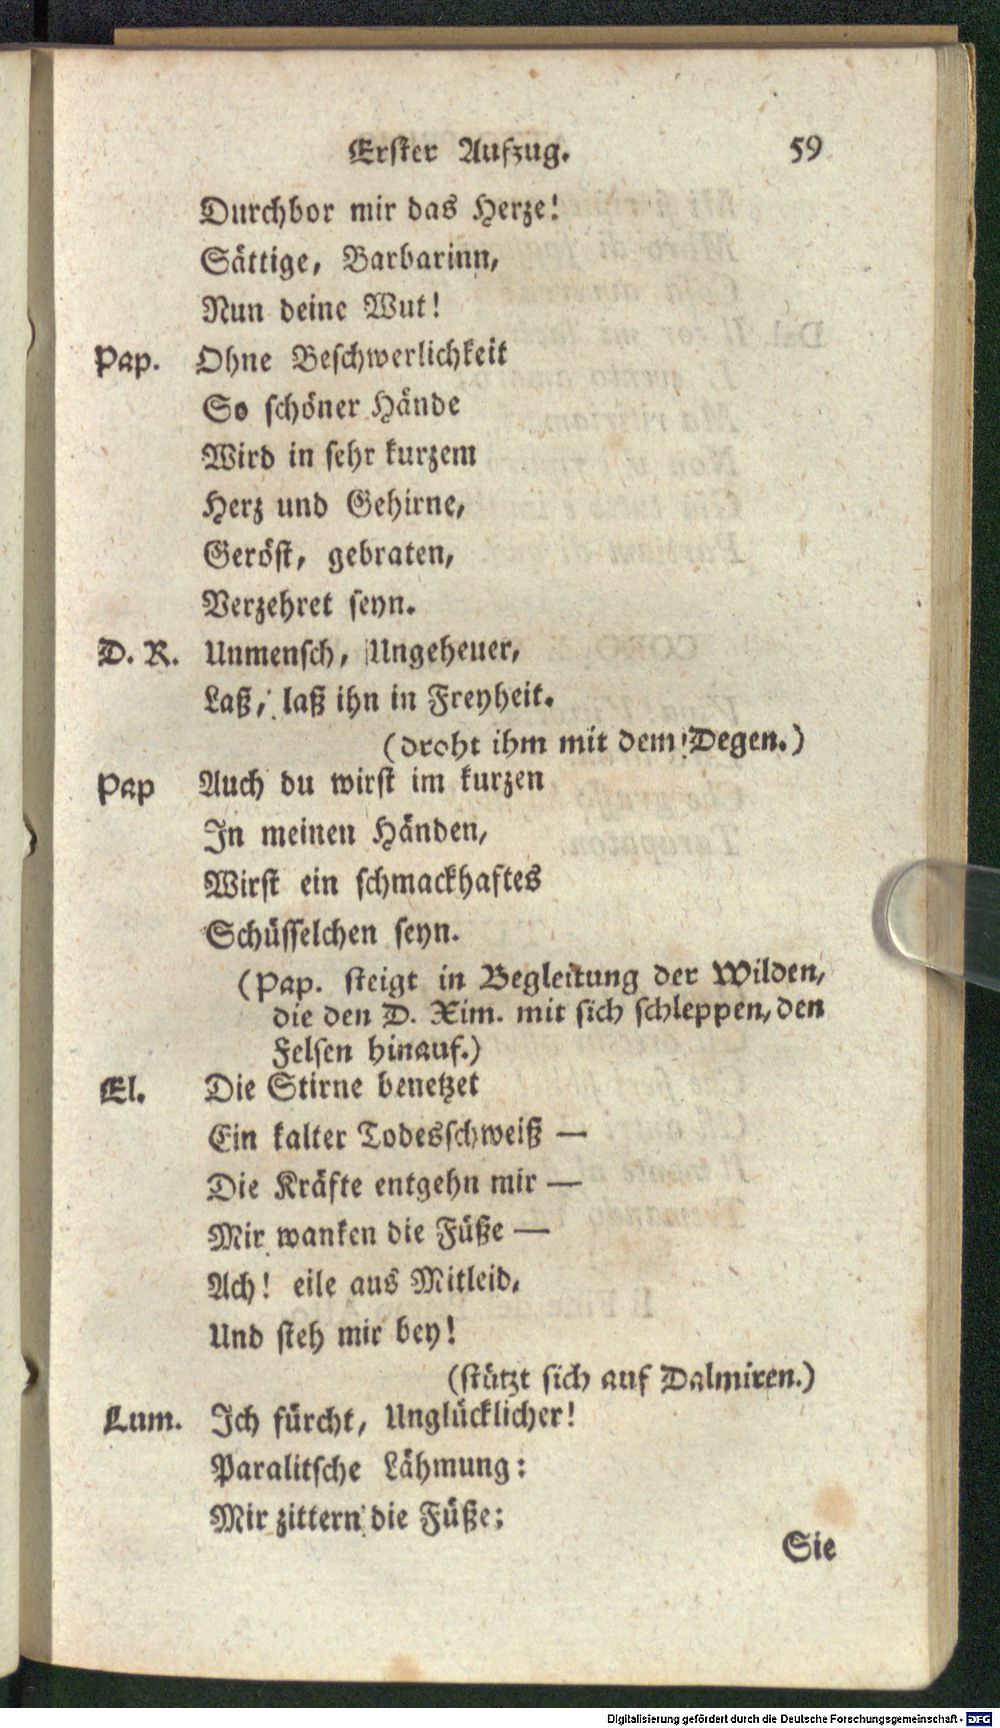 Erster Aufzug. 59
Durchbor mir das Herze!
Sättige, Barbarinn,
Nun deine Wut!
Pap. Ohne Beschwerlichkeit
So schöner Hände
Wird in sehr kurzem
Herz und Gehirne,
Geröst, gebraten,
Verzehret seyn.
D. R. Unmensch, Ungeheuer,
Laß, laß ihn in Freyheit.
(droht ihm mit dem Degen.)
Pap Auch du wirst im kurzen
In meinen Händen,
Wirst ein schmackhaftes
Schüsselchen seyn.
(Pap. steigt in Begleitung der Wilden,
die den D. Xim. mit sich schleppen, den
Felsen hinauf.)
El. Die Stirne benetzet
Ein kalter Todesschweiß —
Die Kräfte entgehn mir —
Mir wanken die Füße —
Ach! eile aus Mitleid,
Und steh mir bey!
(stützt sich auf Dalmiren.)
Lum. Ich fürcht, Unglücklicher!
Paralitsche Lähmung:
Mir zittern die Füße;
Sie
Digitalisierung gefördert durch die Deutsche Forschungsgemeinschaft - DFG